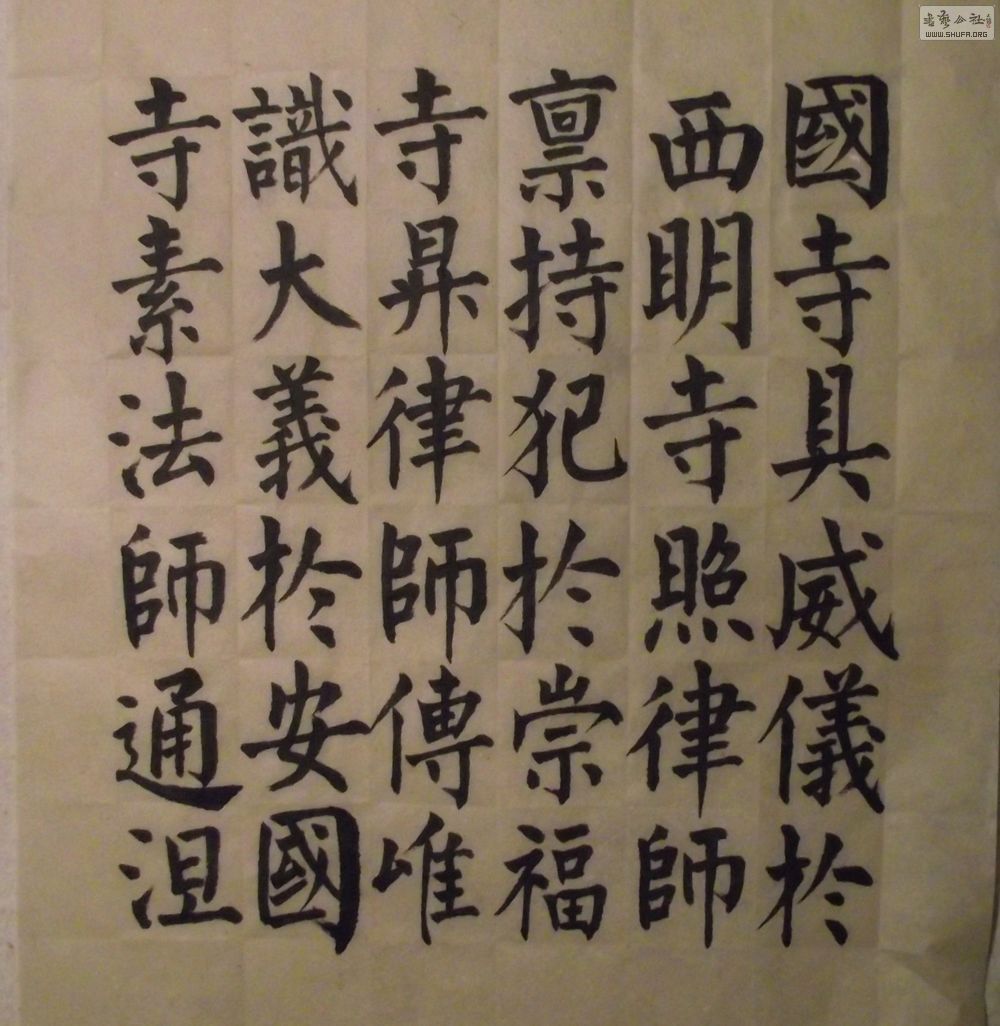 國寺具威儀於
西明寺照律師
禀持犯於崇福
寺昇律師傳唯
識大義於安國
寺素法師通涅
書藝公社
WWW.SHUFA.ORG